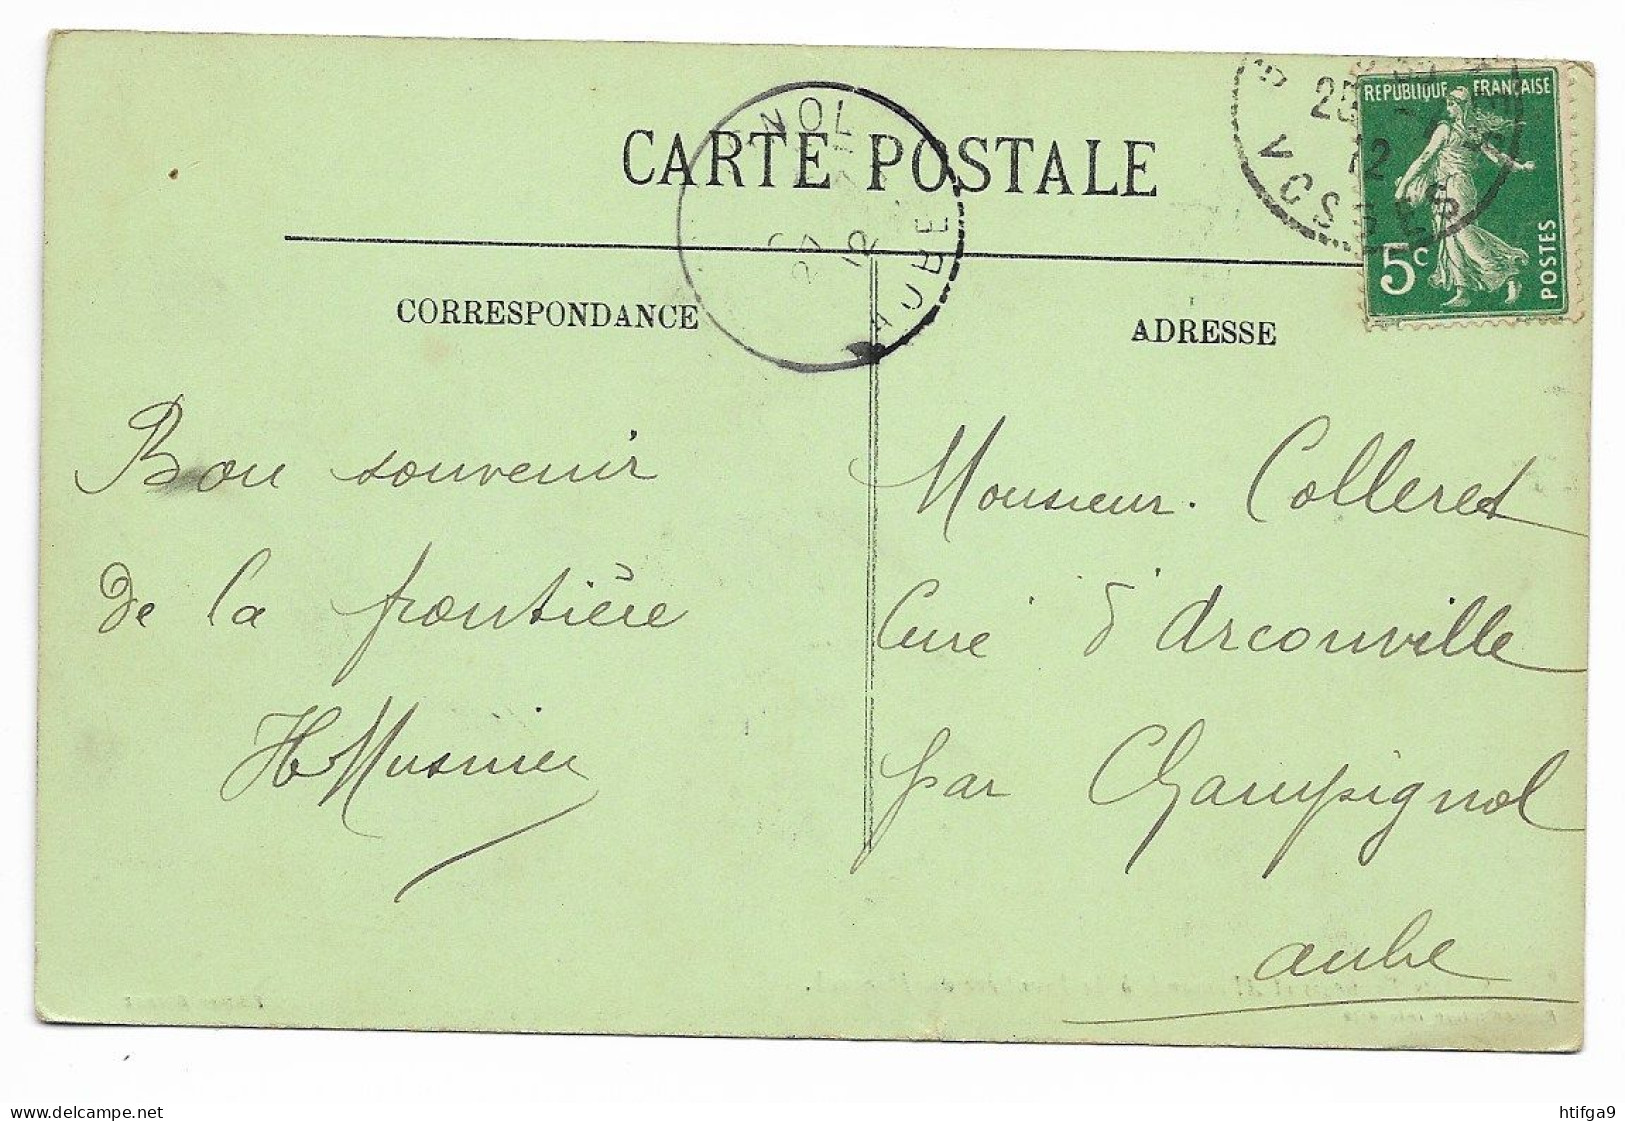 CARTE POSTALE
CORRESPONDANCE
ADRESSE
REPUBLIQUE FRANÇAISE
5c
POSTES
VOSGES
12
NOL
27
12
AUBE
Bon souvenir
de la frontière
H Musnier
Monsieur. Colleret
Curé d'Arconville
par Champignol
aube
www.delcampe.net
htifga9